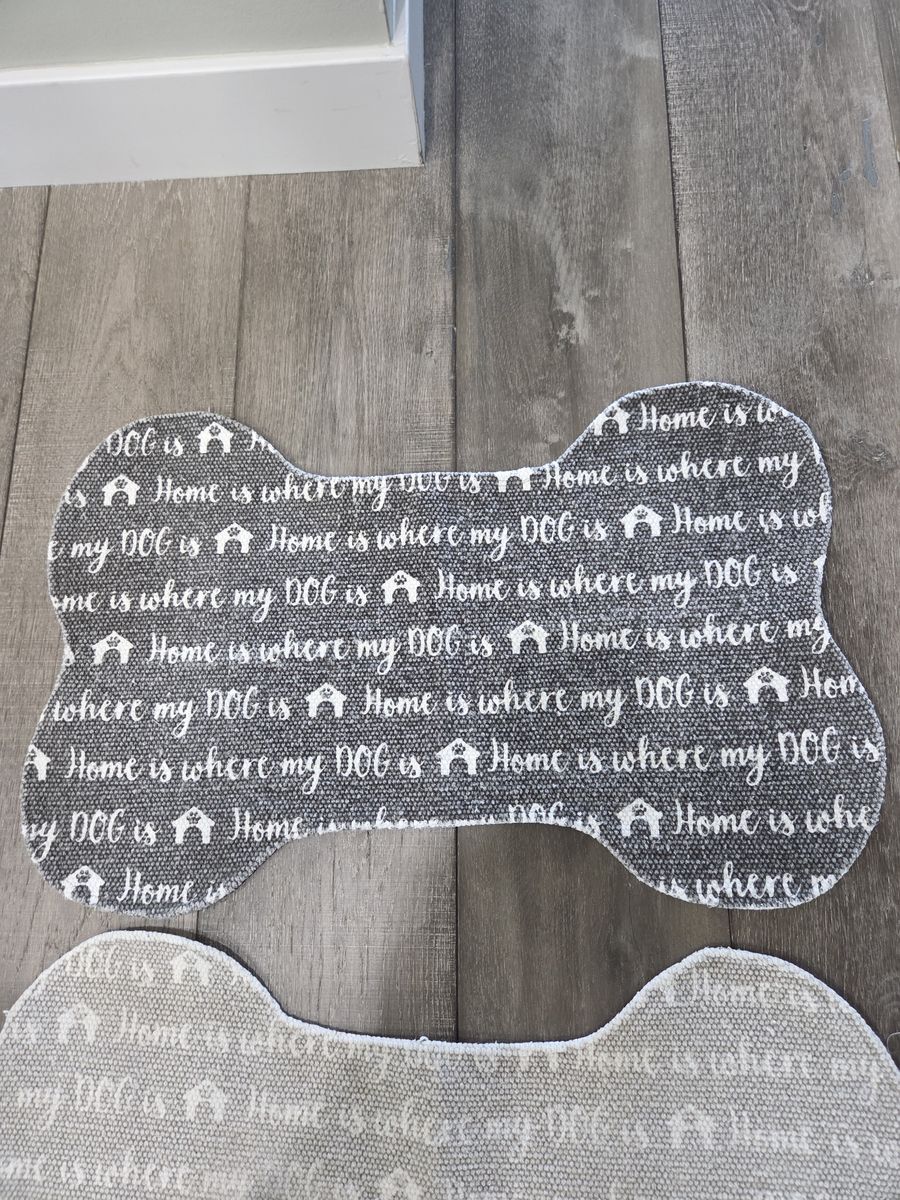 DOG is
Home is
is Home is where my DOG is Home is where my
my DOG is Home is where my DOG is Home is
is where my DOG is Home is where my DOG is
Home is where my DOG is Home is where my
where my DOG is Home is where my DOG is Hom
Home is where my DOG is Home is where my DOG is
my DOG is Home is where my DOG is Home is whe
Home is where m
DOG is Home is
is Home is where my Home is where my
my DOG is Home is where my DOG is Home is
Home is where